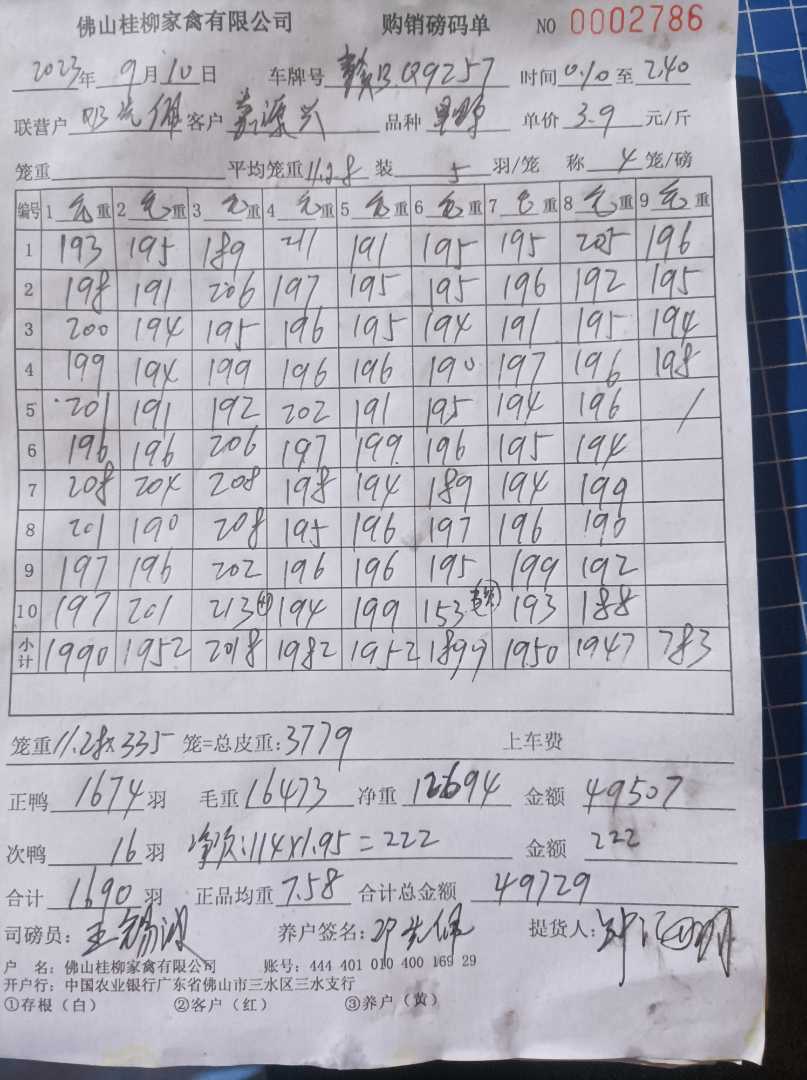 佛山桂柳家禽有限公司 购销磅码单 NO 0002786
2023年 9月10日 车牌号 B.Q9257 时间 0.10 至 2.40
联营户 邓光雄 客户 嘉源兴 品种 单价 3.9 元/斤
笼重 平均笼重 11.28 装 5 羽/笼 称 4 笼/磅
编号 1 毛重 2 毛重 3 毛重 4 毛重 5 毛重 6 毛重 7 毛重 8 毛重 9 毛重
1 193 195 189 211 191 195 195 205 196
2 198 191 206 197 195 195 196 192 195
3 200 194 195 196 195 194 191 195 194
4 199 194 199 196 196 190 197 196 198
5 201 191 192 202 191 195 194 196 /
6 196 196 206 197 199 196 195 194
7 208 204 208 198 194 189 194 199
8 201 190 208 195 196 197 196 190
9 197 196 202 196 196 195 199 192
10 197 201 213 194 199 153 193 188
小计 1990 1952 2018 1982 1952 1899 1950 1947 783
笼重 11.28×335 笼=总皮重:3779 上车费
正鸭 1674 羽 毛重 16473 净重 12694 金额 49507
次鸭 16 羽 净次:114×1.95=222 金额 222
合计 1690 羽 正品均重 7.58 合计总金额 49729
司磅员:王锡波 养户签名:邓光雄 提货人:
户 名:佛山桂柳家禽有限公司 账号:444 401 010 400 169 29
开户行:中国农业银行广东省佛山市三水区三水支行
①存根(白) ②客户(红) ③养户(黄)